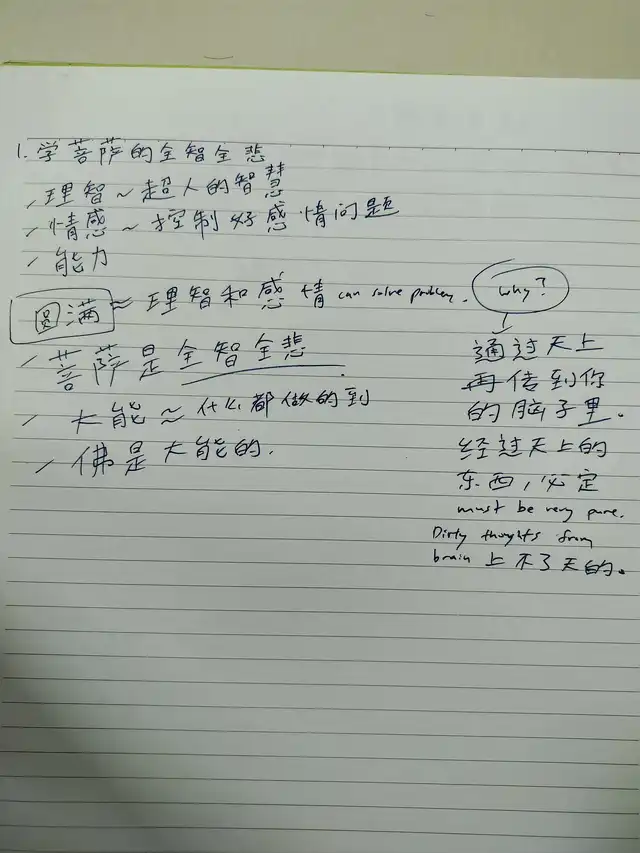 1. 学菩萨的全智全悲
/ 理智 ~ 超人的智慧
/ 情感 ~ 控制好感情问题
/ 能力
圆满 ≈ 理智和感情 can solve problem.
/ 菩萨是全智全悲.
/ 大能 ≈ 什么都做的到
/ 佛是大能的.
why?
通过天上
再传到你
的脑子里.
经过天上的
东西, 必定
must be very pure.
Dirty thoughts from
brain 上不了天的.